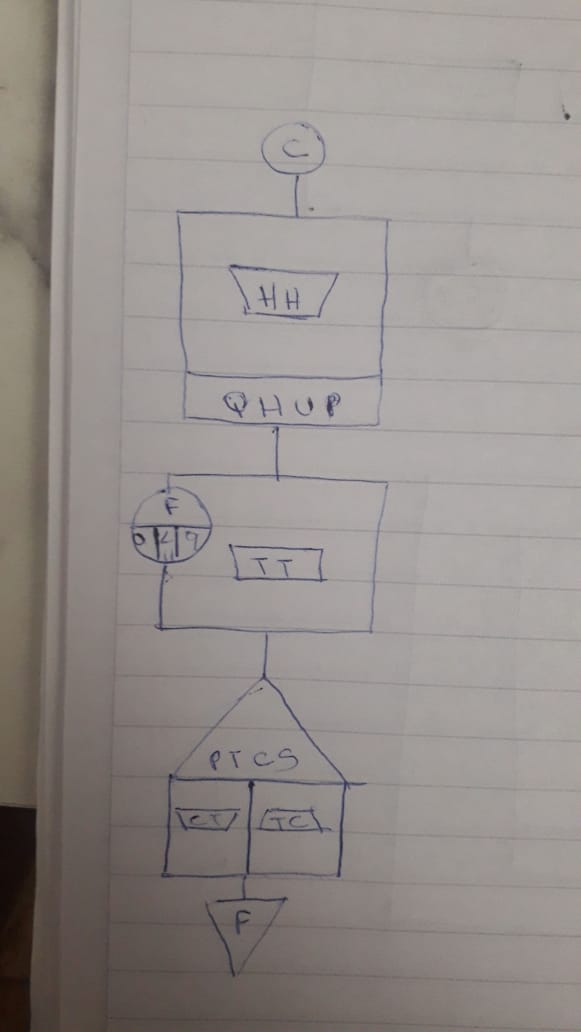 C
HH
QHUP
F
0 2 9
TT
PTCS
CT TC
F